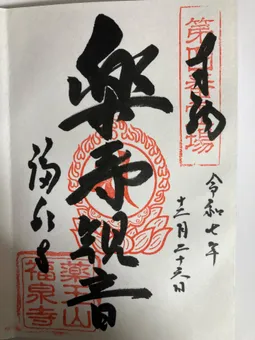 奉納
第四番霊場
令和七年
十二月二十六日
観音
福泉寺
薬王山
福泉寺